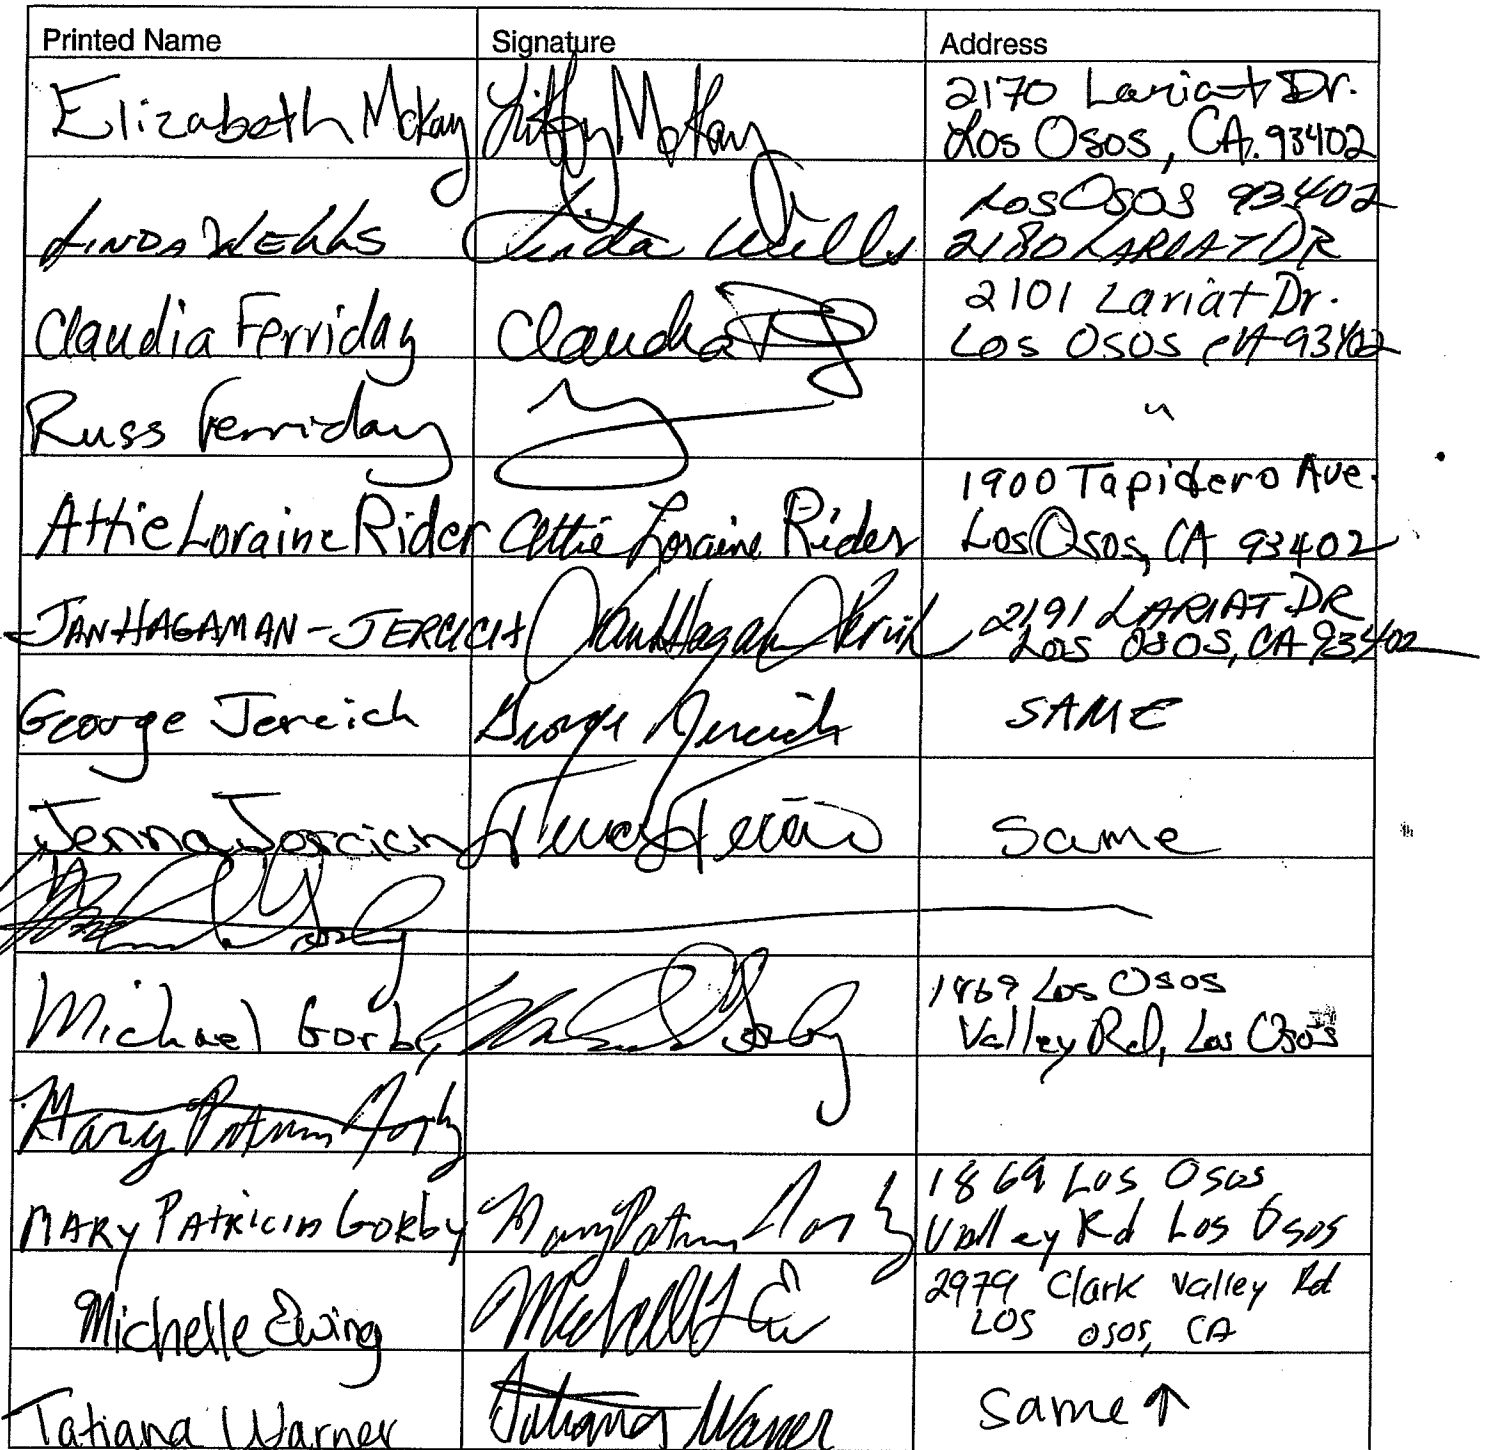 Printed Name Signature Address
Elizabeth McKay Liffy McKay 2170 Lariat Dr.
Los Osos, CA. 93402
LINDA WELLS Linda Wells Los Osos 93402
2180 LARIAT DR
Claudia Ferriday Claudia 2101 Lariat Dr.
Los Osos CA 93402
Russ Ferriday "
Attie Loraine Rider Attie Loraine Rider 1900 Tapidero Ave.
Los Osos, CA 93402
JAN HAGAMAN-JERCICH Jan Hagaman Jercich 2191 LARIAT DR
Los OSOS, CA 93402
George Jercich George Jercich SAME
Jenna Jercich same
Michael Gorby Michael Gorby 1869 Los Osos
Valley Rd, Los Osos
Mary Gorby
MARY PATRICIA GORBY Mary Gorby 1869 Los Osos
Valley Rd Los Osos
Michelle Ewing 2979 Clark Valley Rd
LOS OSOS, CA
Tatiana Warner Tatiana Warner Same ↑